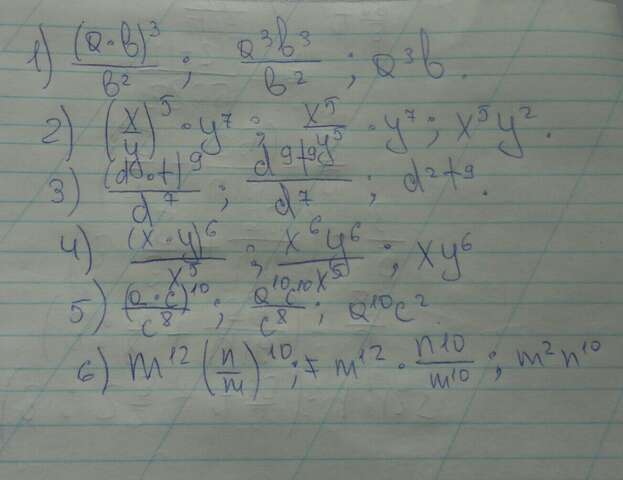 1) (a·b)³/b² ; a³b³/b² ; a³b.
2) (x/y)⁵ · y⁷ ; x⁵/y⁵ · y⁷ ; x⁵y².
3) (d·t)⁹/d⁷ ; d⁹t⁹/d⁷ ; d²t⁹.
4) (x·y)⁶/x⁵ ; x⁶y⁶/x⁵ ; xy⁶
5) (a·c)¹⁰/c⁸ ; a¹⁰c¹⁰/c⁸ ; a¹⁰c².
6) m¹²(n/m)¹⁰ ; m¹² · n10/m¹⁰ ; m²n¹⁰